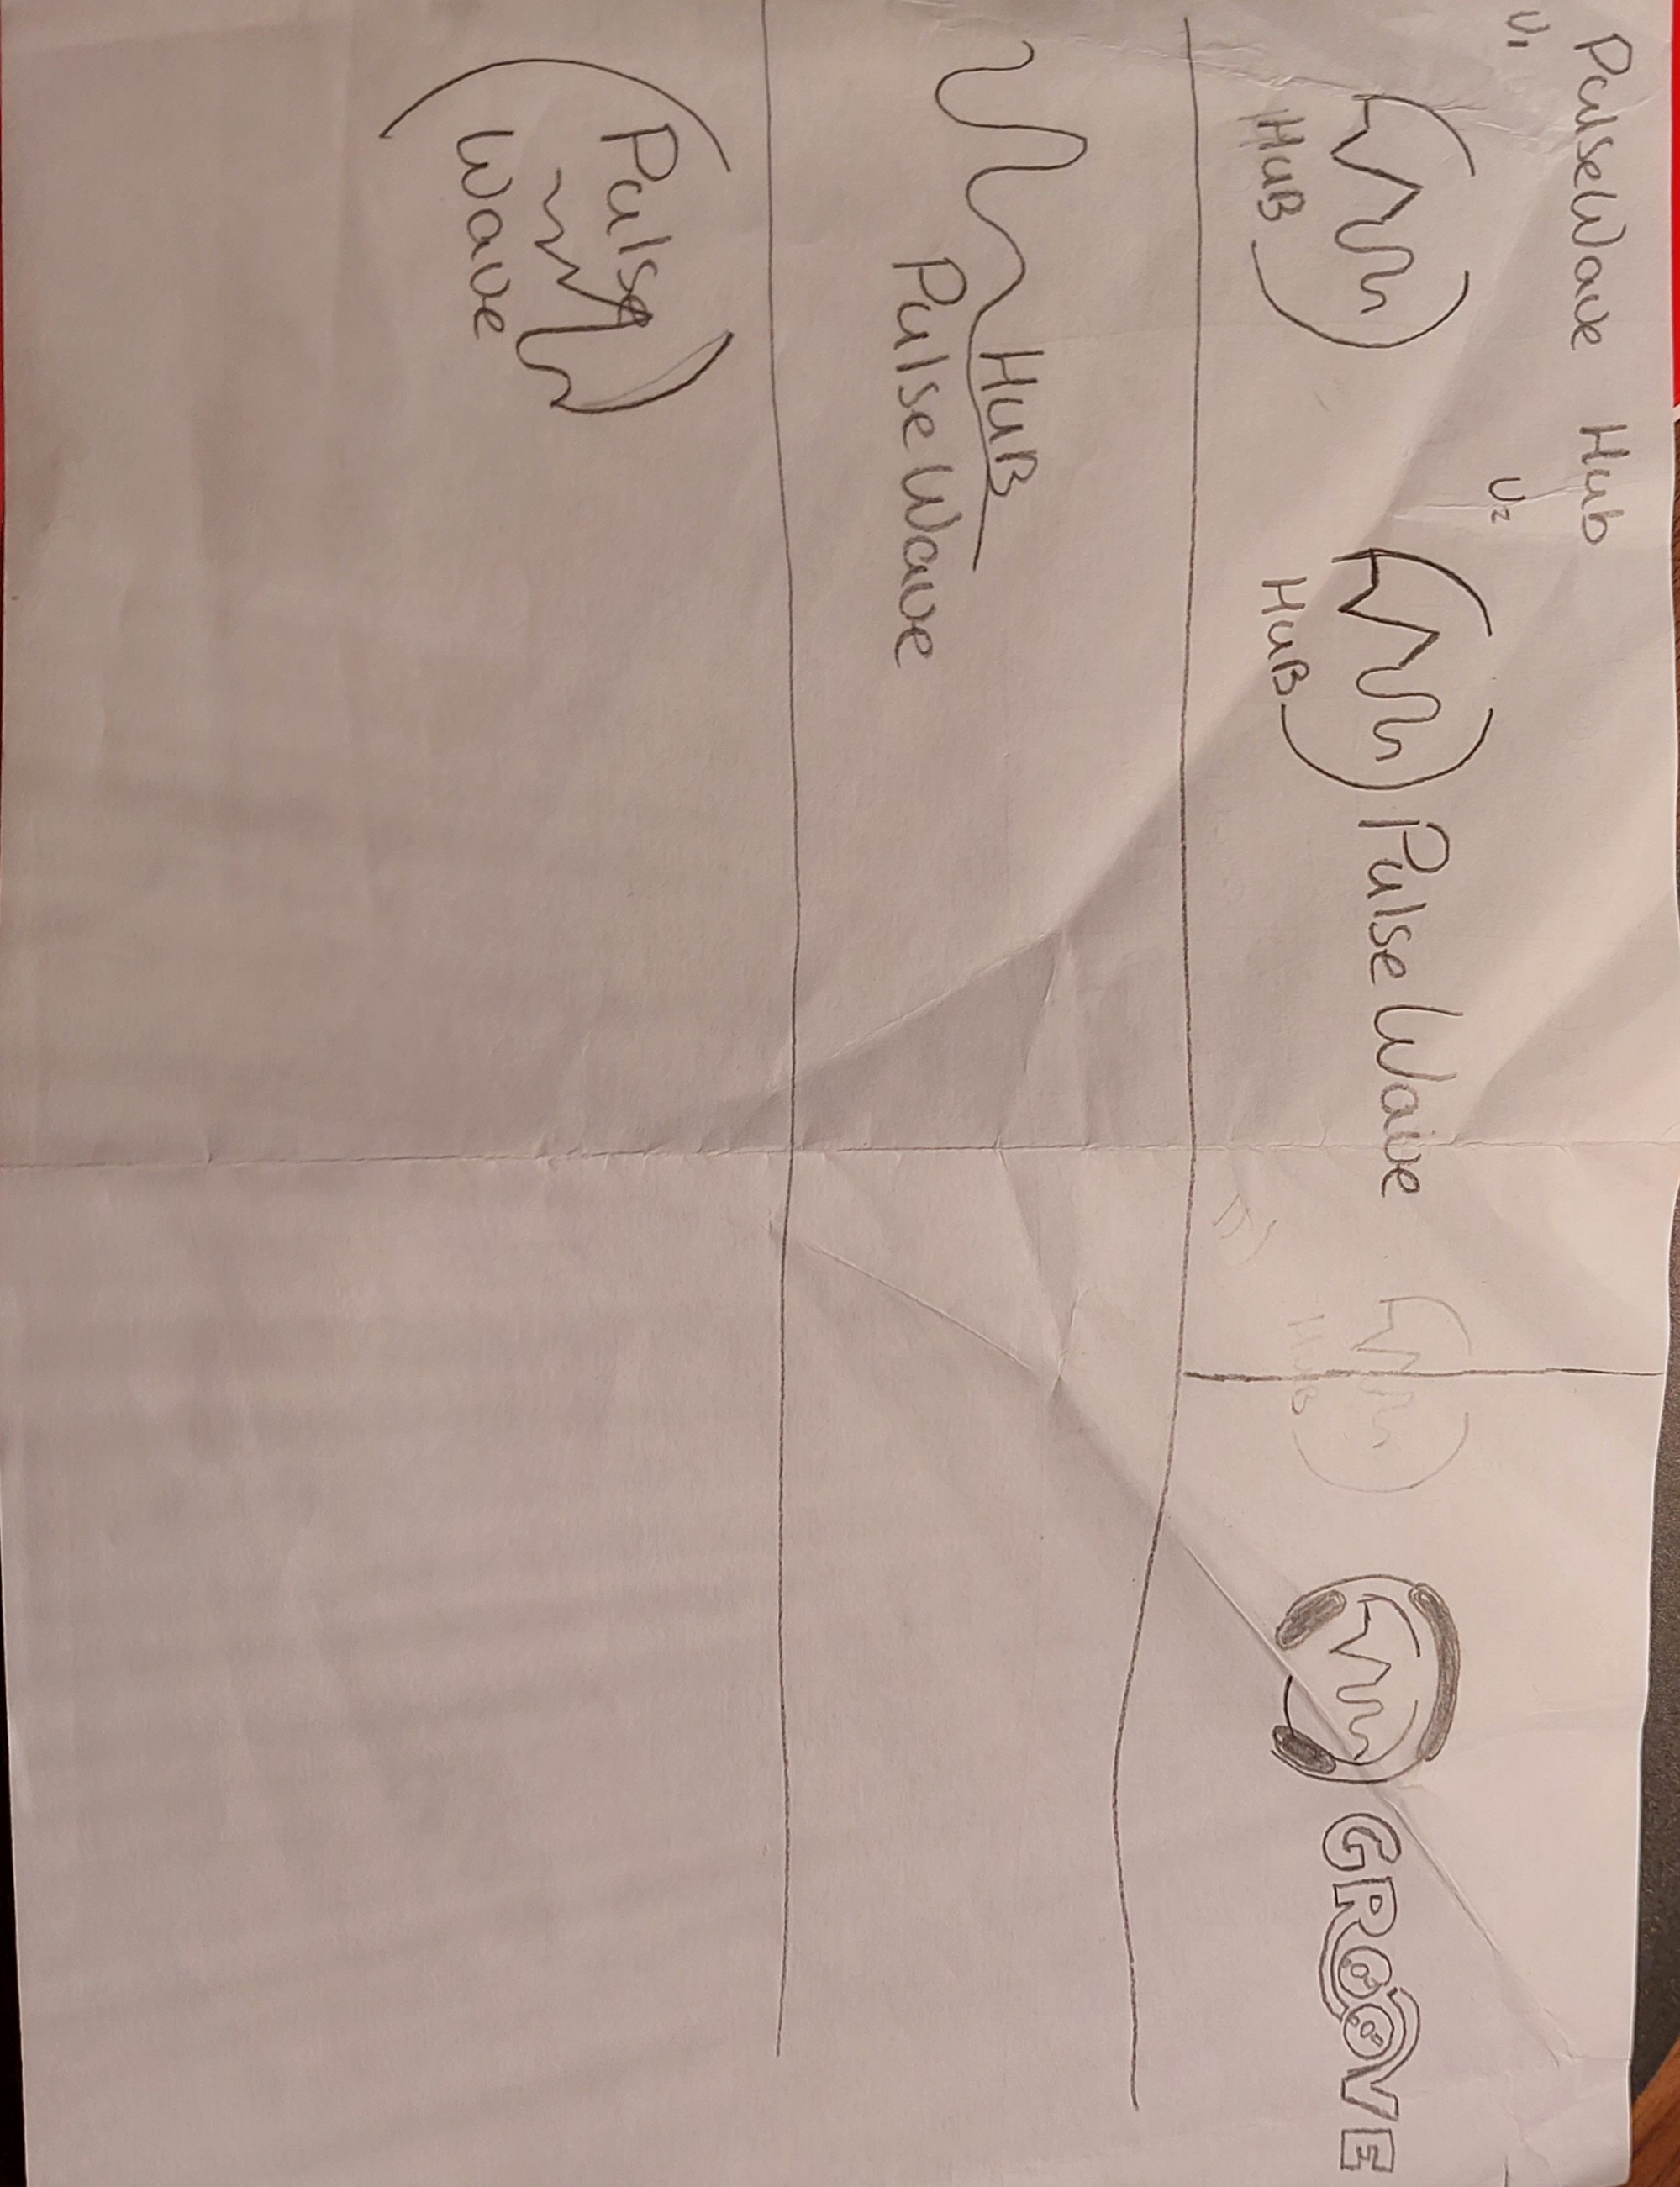 PulseWave Hub
V1
V2
HUB
HUB
Pulse Wave
HUB
GROOVE
HUB
Pulse Wave
Pulse
Wave